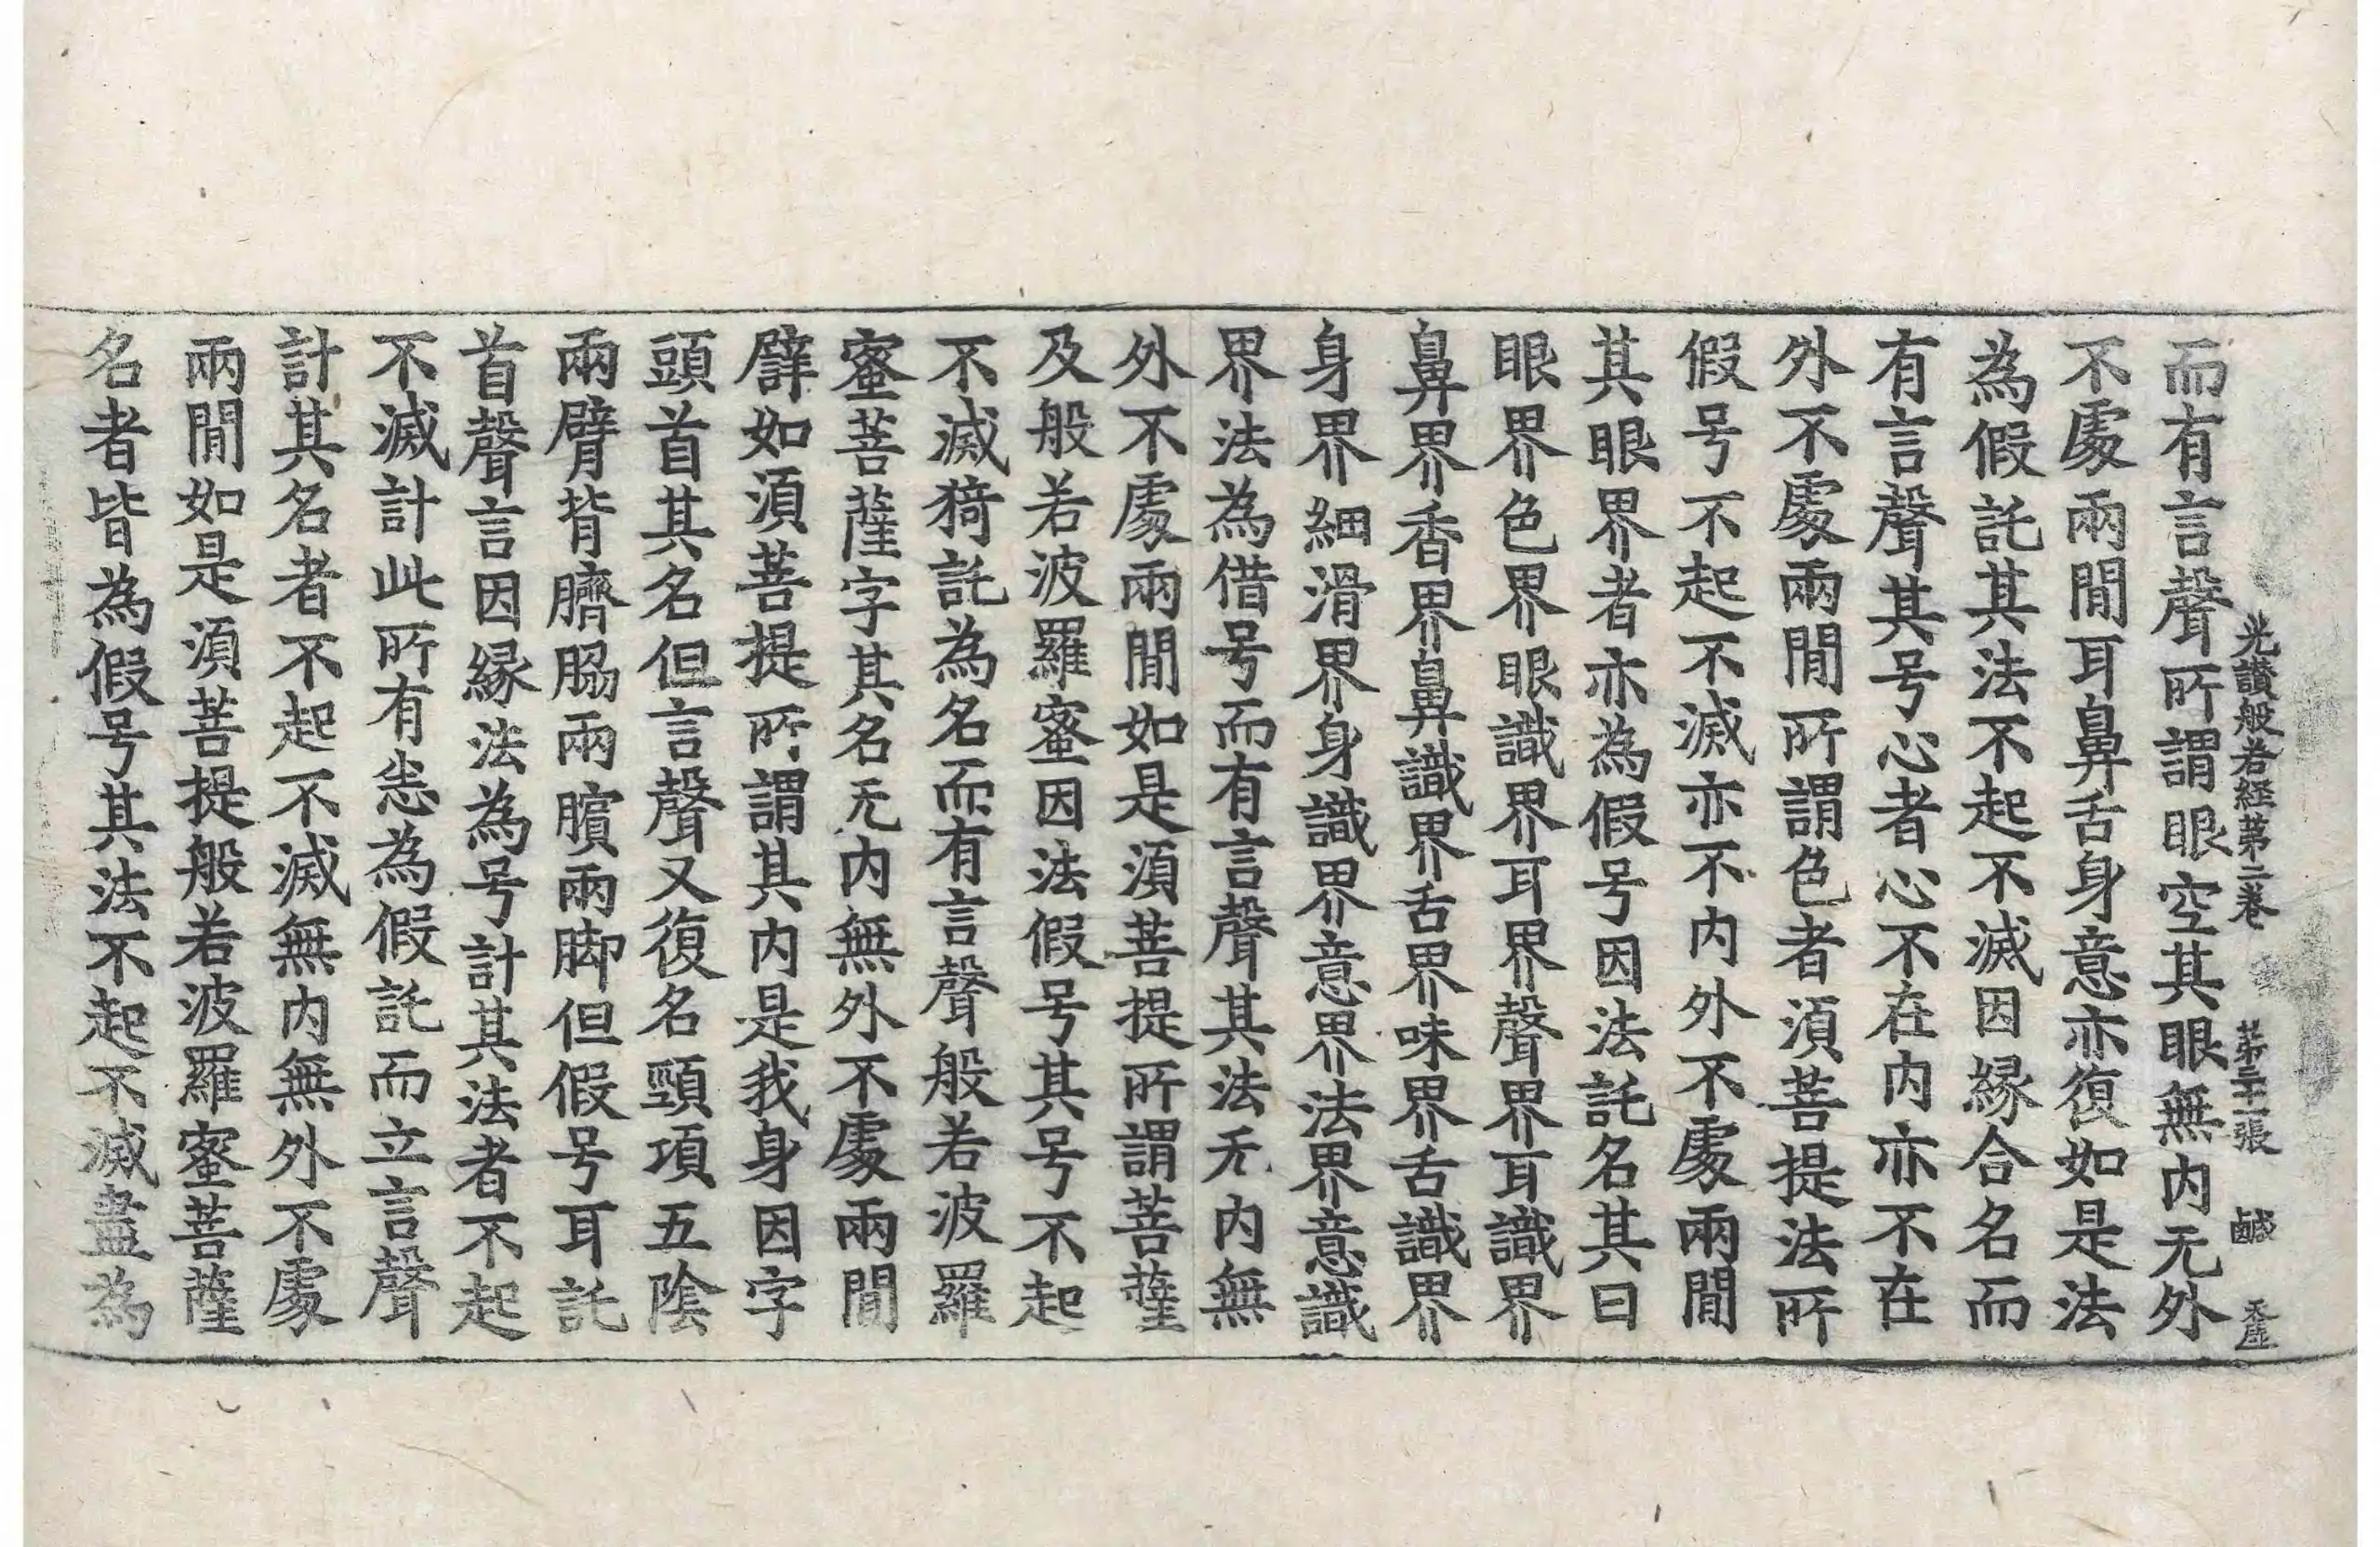 光讃般若経第二卷 第二十一張 鹹 天庄
而有言聲所謂眼空其眼無内无外
不處兩閒耳鼻舌身意亦復如是法
為假託其法不起不滅因縁合名而
有言聲其号心者心不在内亦不在
外不處兩閒所謂色者須菩提法所
假号不起不滅亦不内外不處兩閒
其眼界者亦為假号因法託名其曰
眼界色界眼識界耳界聲界耳識界
鼻界香界鼻識界舌界味界舌識界
身界細滑界身識界意界法界意識
界法為借号而有言聲其法无内無
外不處兩閒如是須菩提所謂菩薩
及般若波羅蜜因法假号其号不起
不滅猗託為名而有言聲般若波羅
蜜菩薩字其名无内無外不處兩閒
譬如須菩提所謂其内是我身因字
頭首其名但言聲又復名頸項五陰
兩臂背臍脇兩臏兩脚但假号耳託
首聲言因縁法為号計其法者不起
不滅計此所有恙為假託而立言聲
計其名者不起不滅無内無外不處
兩閒如是須菩提般若波羅蜜菩薩
名者皆為假号其法不起不滅盡為